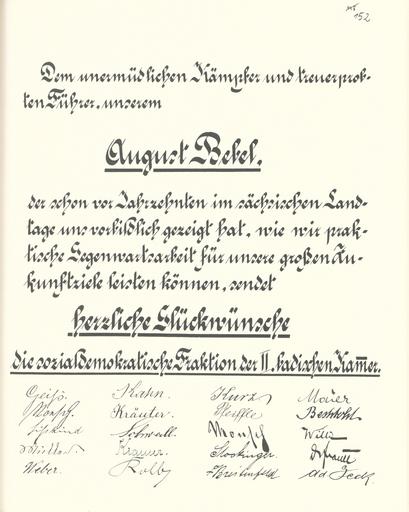 152
Dem unermüdlichen Kämpfer und treuerprob-
ten Führer, unserem
August Bebel,
der schon vor Jahrzehnten im sächsischen Land-
tage uns vorbildlich gezeigt hat, wie wir prak-
tische Gegenwartsarbeit für unsere großen Zu-
kunftziele leisten können, sendet
herzliche Glückwünsche
die sozialdemokratische Fraktion der II. badischen Kam̄er.
Geiß. Kahn. Kurz Maier
Monsch. Kräuter. Pfeiffle
Süßkind Schwall. Monsch Willi
Kramer. Stockinger. Frank
Weber. Kolb Breitenfeld ad Geck